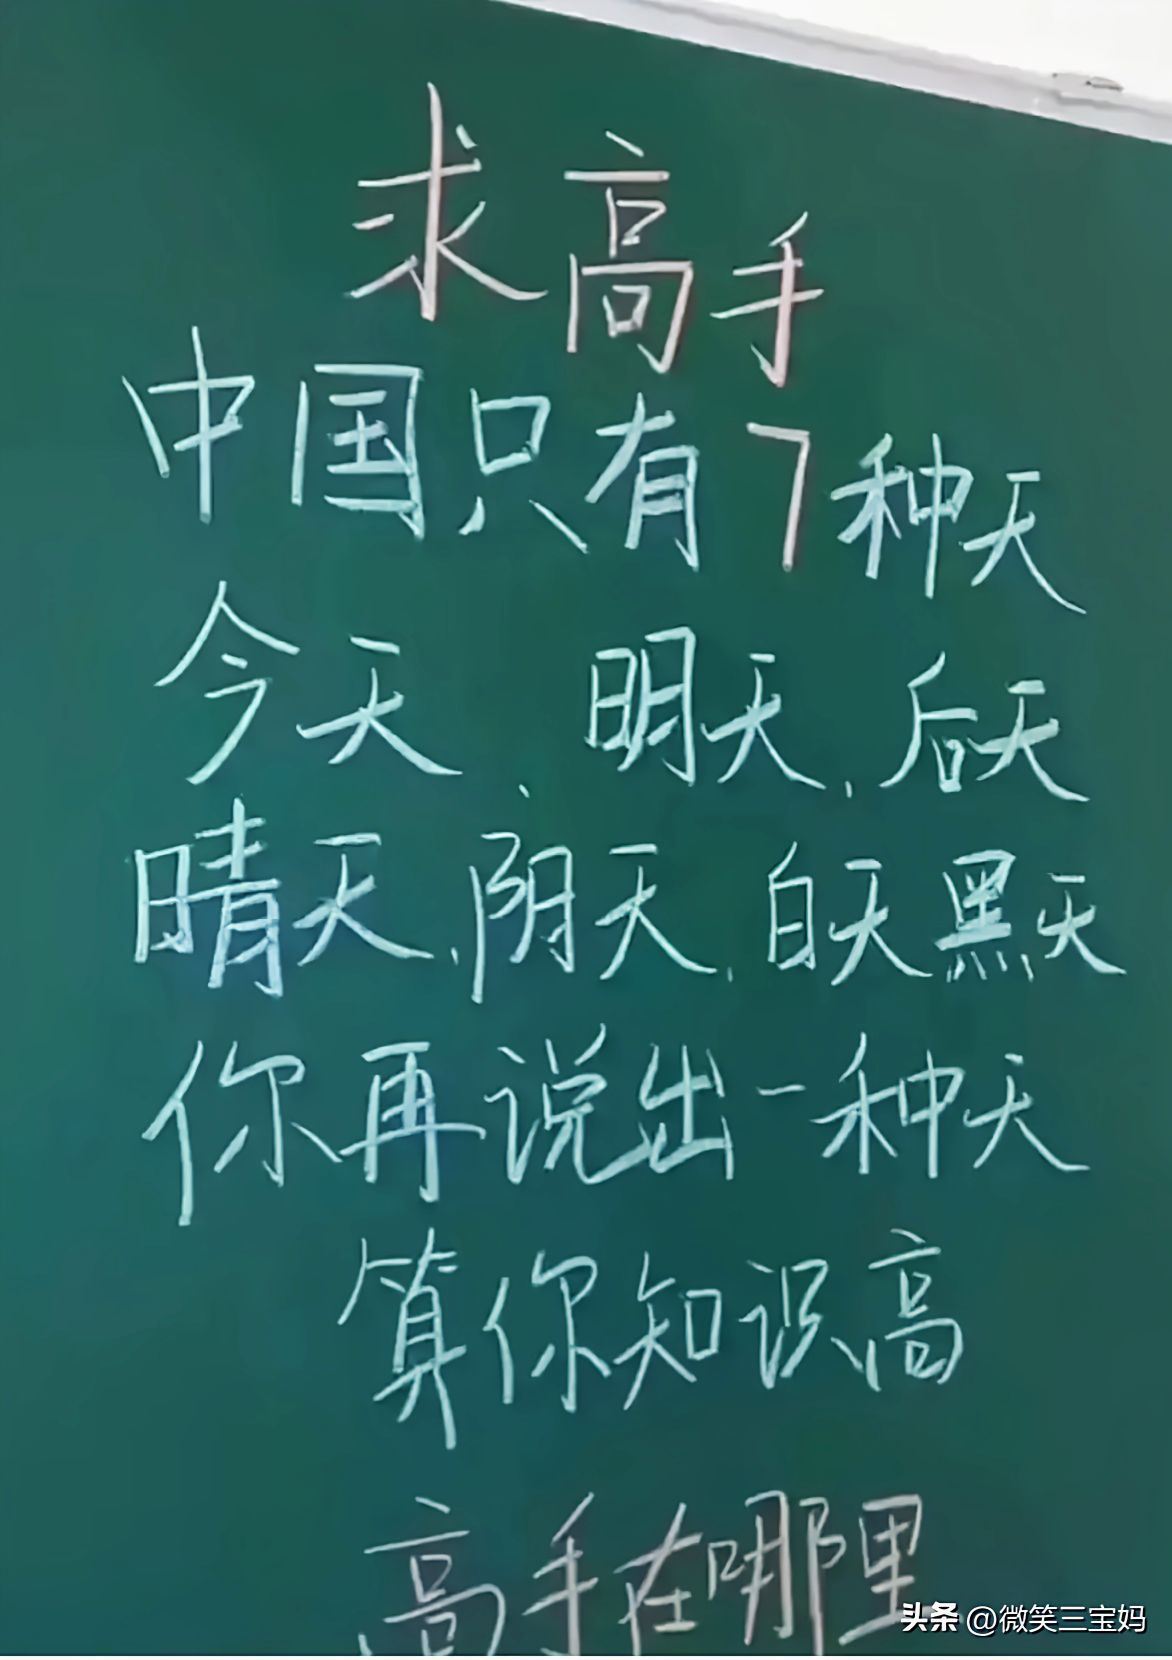 求高手
中国只有7种天
今天、明天、后天
晴天、阴天、白天黑天
你再说出一种天
算你知识高
高手在哪里
头条 @微笑三宝妈